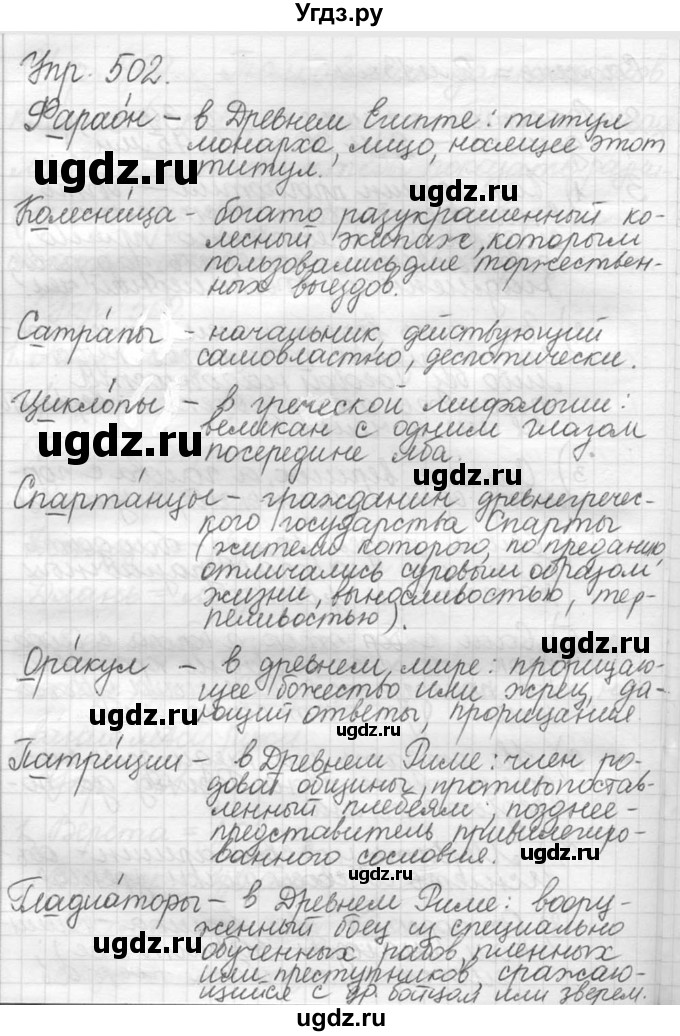 Угдз.ру
Упр. 502.
Фарао́н – в Древнем Египте: титул
монарха, лицо, носящее этот
титул.
ugdz.ru
Колесни́ца – богато разукрашенный ко-
лесный экипаж, которым
пользовались для торжествен-
ных выездов.
ugdz.ru
Сатра́пы – начальник, действующий
самовластно, деспотически.
ugdz.ru
Цикло́пы – в греческой мифологии:
великан с одним глазом
посередине лба.
ugdz.ru
ugdz.ru
Спарта́нцы – гражданин древнегречес-
кого государства Спарты
(жители которого, по преданию,
отличались суровым образом
жизни, выносливостью, тер-
пеливостью).
ugdz.ru
Ора́кул – в древнем мире: прорицаю-
щее божество или жрец, да-
ющий ответы, прорицания
ugdz.ru
ugdz.ru
Патри́ции – в Древнем Риме: член ро-
довой общины, противопостав-
ленный плебеям; позднее –
представитель привилегиро-
ванного сословия.
ugdz.ru
ugdz.ru
Гладиа́торы – в Древнем Риме: воору-
женный боец из специально
обученных рабов, пленных
или преступников, сражаю-
щийся с др. бойцом или зверем.
ugdz.ru
ugdz.ru
ugdz.ru